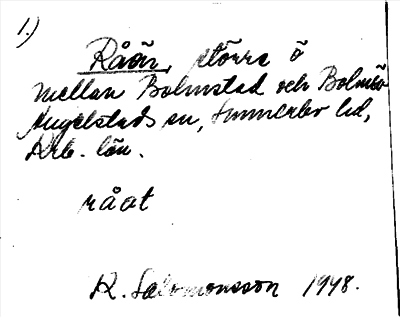 1.)
Råön, större ö
mellan Bolmstad och Bolmsö
Angelstads sn, Sunnerbo hd,
Krb. län.
råøt
R. Salomonsson 1948.